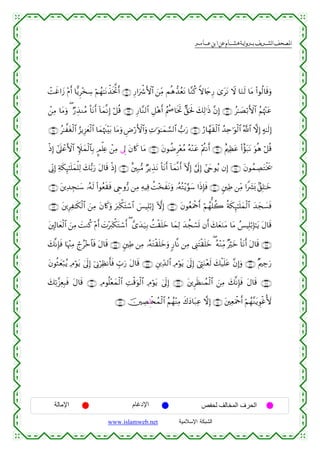 المصحف الشريف برواية هشام عن ابن عامر
وَقَالُوا۟ مَا لَنَا لَا نَرَىٰ رِجَالًا كُنَّا نَعُدُّهُم مِّنَ ٱلْأَشْرَارِ ۝ أَتَّخَذْنَٰهُمْ سِخْرِيًّا أَمْ زَاغَتْ
عَنْهُمُ ٱلْأَبْصَٰرُ ۝ إِنَّ ذَٰلِكَ لَحَقٌّ تَخَاصُمُ أَهْلِ ٱلنَّارِ ۝ قُلْ إِنَّمَآ أَنَا۠ مُنذِرٌ ۖ وَمَا مِنْ
إِلَٰهٍ إِلَّا ٱللَّهُ ٱلْوَٰحِدُ ٱلْقَهَّارُ ۝ رَبُّ ٱلسَّمَٰوَٰتِ وَٱلْأَرْضِ وَمَا بَيْنَهُمَا ٱلْعَزِيزُ ٱلْغَفَّٰرُ ۝
قُلْ هُوَ نَبَؤٌا۟ عَظِيمٌ ۝ أَنتُمْ عَنْهُ مُعْرِضُونَ ۝ مَا كَانَ لِى مِنْ عِلْمٍۭ بِٱلْمَلَإِ ٱلْأَعْلَىٰٓ إِذْ
يَخْتَصِمُونَ ۝ إِن يُوحَىٰٓ إِلَىَّ إِلَّآ أَنَّمَآ أَنَا۠ نَذِيرٌ مُّبِينٌ ۝ إِذْ قَالَ رَبُّكَ لِلْمَلَٰٓئِكَةِ إِنِّى
خَٰلِقٌۢ بَشَرًا مِّن طِينٍ ۝ فَإِذَا سَوَّيْتُهُۥ وَنَفَخْتُ فِيهِ مِن رُّوحِى فَقَعُوا۟ لَهُۥ سَٰجِدِينَ ۝
فَسَجَدَ ٱلْمَلَٰٓئِكَةُ كُلُّهُمْ أَجْمَعُونَ ۝ إِلَّآ إِبْلِيسَ ٱسْتَكْبَرَ وَكَانَ مِنَ ٱلْكَٰفِرِينَ ۝
قَالَ يَٰٓإِبْلِيسُ مَا مَنَعَكَ أَن تَسْجُدَ لِمَا خَلَقْتُ بِيَدَىَّ ۖ أَسْتَكْبَرْتَ أَمْ كُنتَ مِنَ ٱلْعَالِينَ ۝
قَالَ أَنَا۠ خَيْرٌ مِّنْهُ ۖ خَلَقْتَنِى مِن نَّارٍ وَخَلَقْتَهُۥ مِن طِينٍ ۝ قَالَ فَٱخْرُجْ مِنْهَا فَإِنَّكَ
رَجِيمٌ ۝ وَإِنَّ عَلَيْكَ لَعْنَتِىٓ إِلَىٰ يَوْمِ ٱلدِّينِ ۝ قَالَ رَبِّ فَأَنظِرْنِىٓ إِلَىٰ يَوْمِ يُبْعَثُونَ ۝
قَالَ فَإِنَّكَ مِنَ ٱلْمُنظَرِينَ ۝ إِلَىٰ يَوْمِ ٱلْوَقْتِ ٱلْمَعْلُومِ ۝ قَالَ فَبِعِزَّتِكَ
لَأُغْوِيَنَّهُمْ أَجْمَعِينَ ۝ إِلَّا عِبَادَكَ مِنْهُمُ ٱلْمُخْلِصِينَ ۝
الحرف المخالف لحفص الإدغام الإمالة
الشبكة الإسلامية www.islamweb.net